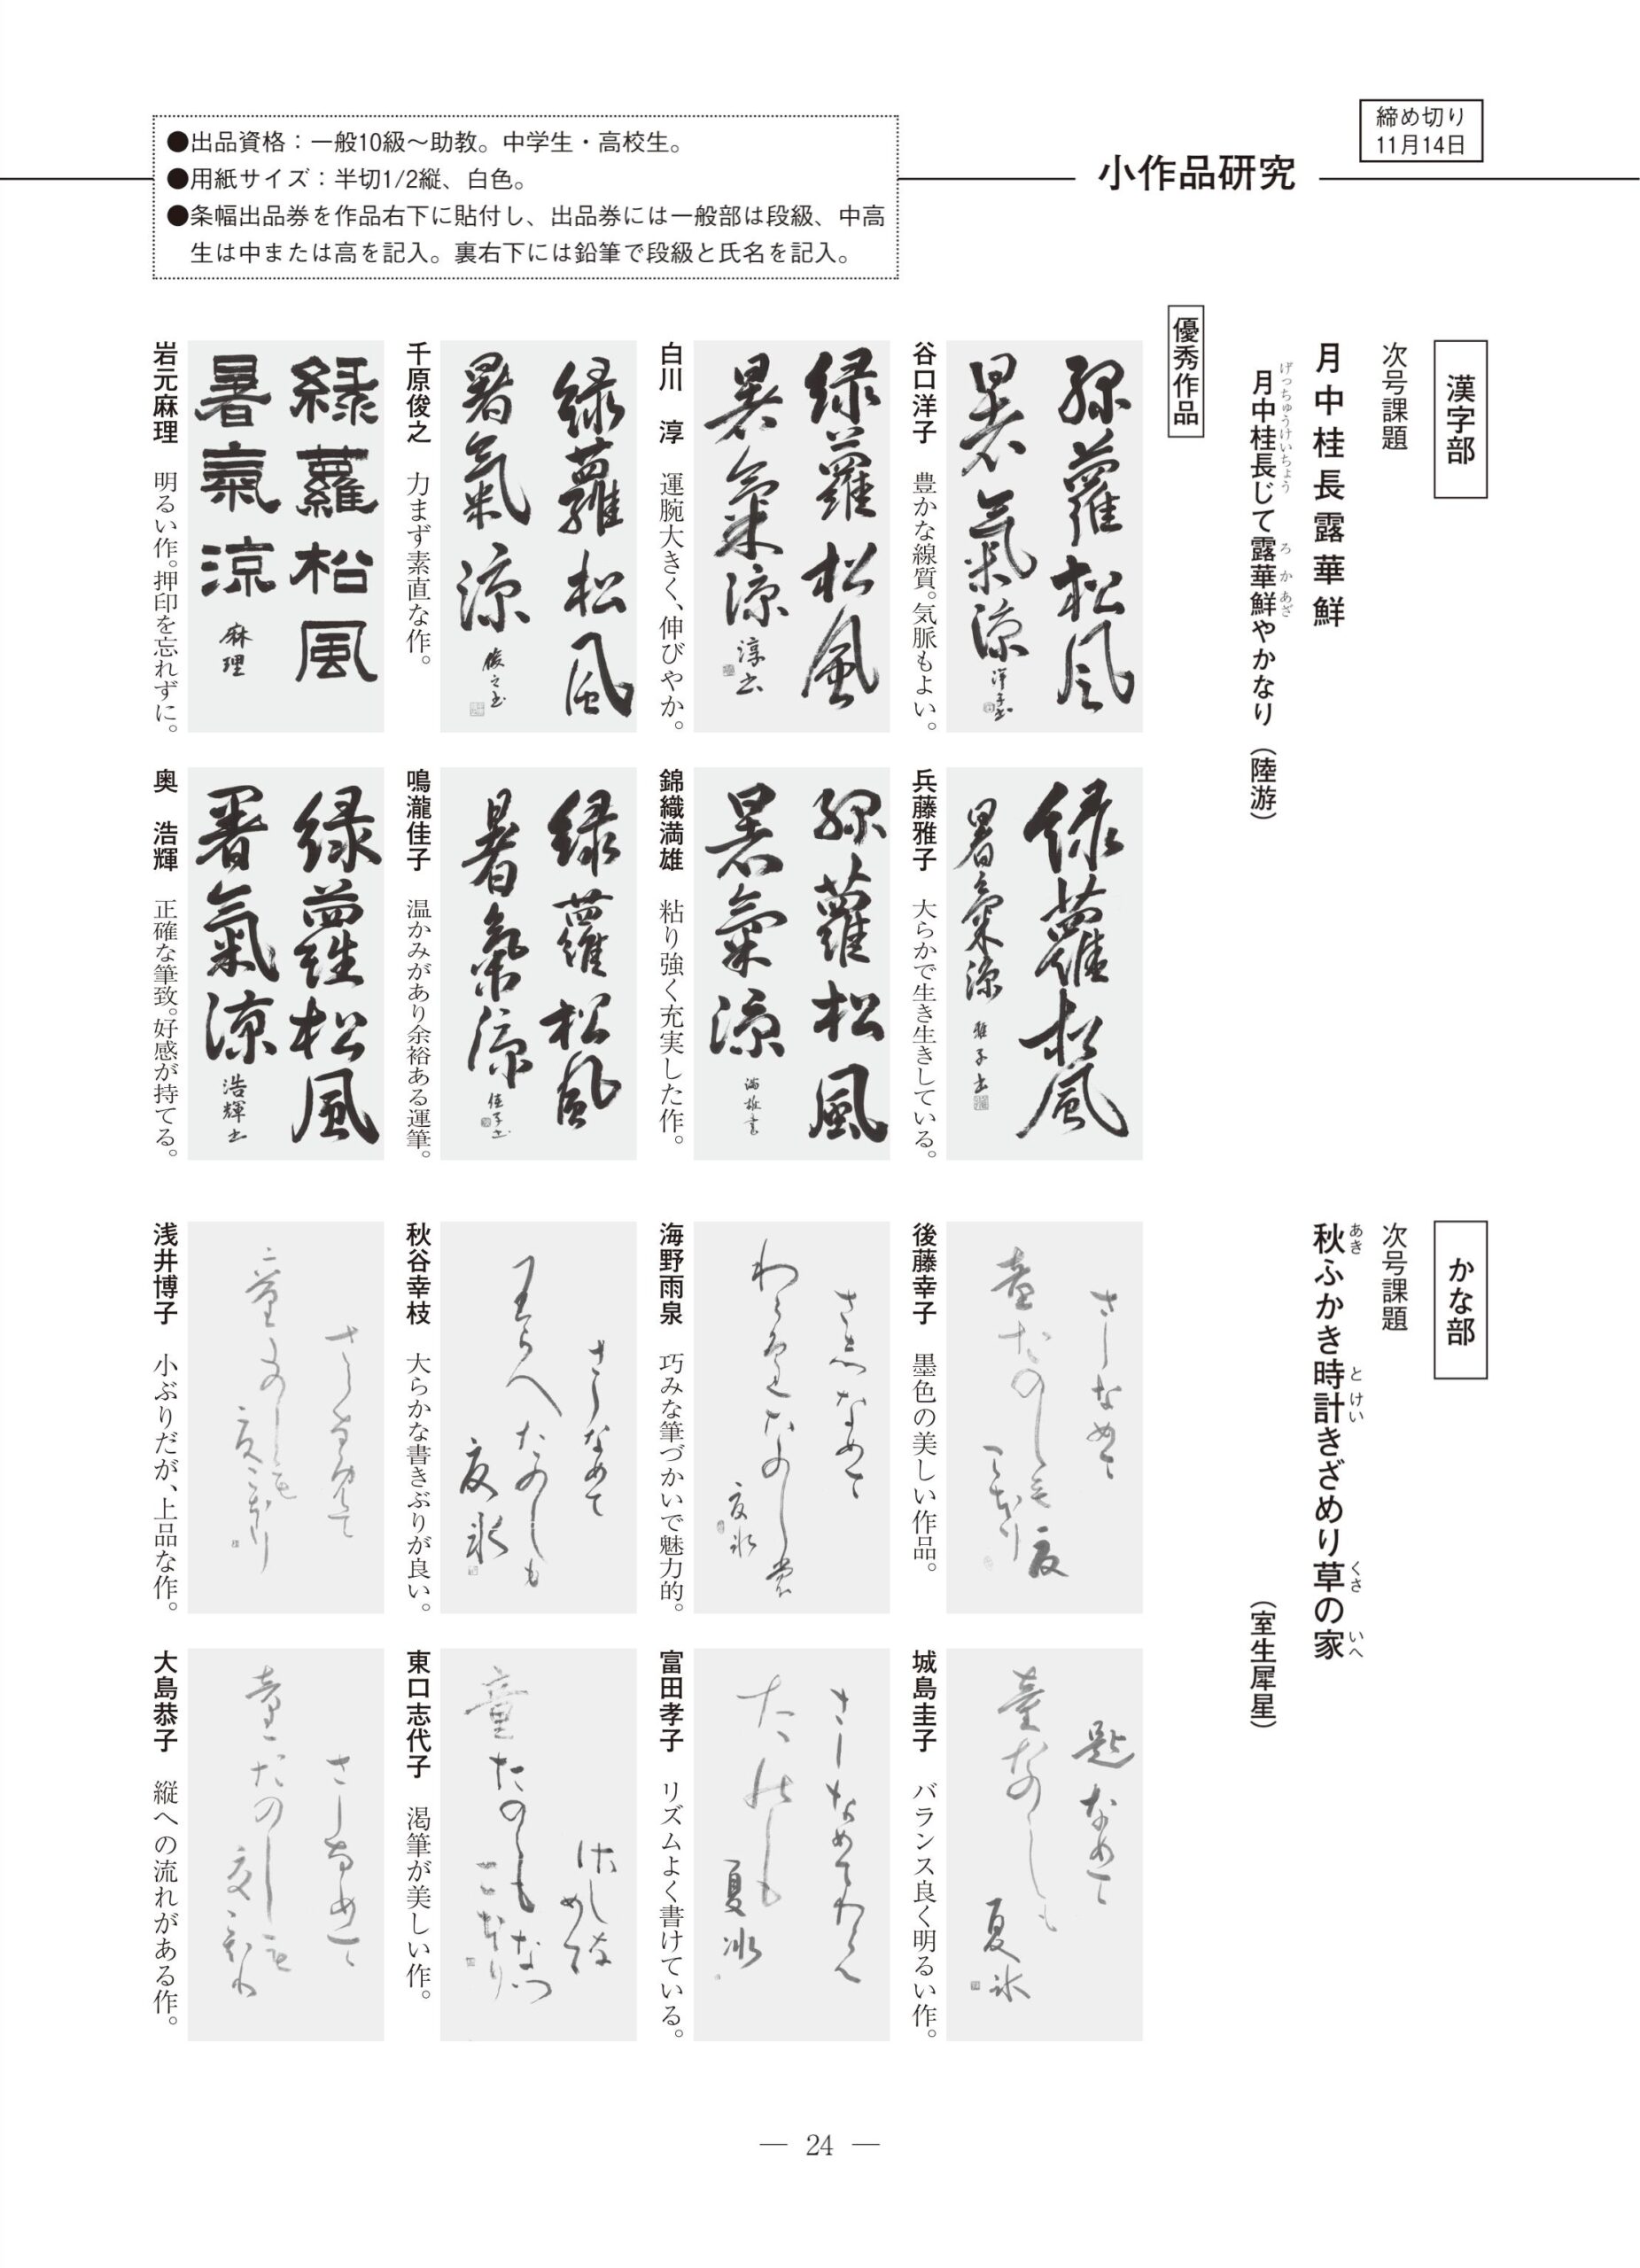 締め切り
11月14日
小作品研究
●出品資格：一般10級〜助教。中学生・高校生。
●用紙サイズ：半切1/2縦、白色。
●条幅出品券を作品右下に貼付し、出品券には一般部は段級、中高
生は中または高を記入。裏右下には鉛筆で段級と氏名を記入。
漢字部
次号課題
月中桂長露華鮮
げっちゅうけいちょう ろ か あざ
月中桂長じて露華鮮やかなり（陸游）
優秀作品
緑蘿松風
暑氣涼
谷口洋子 豊かな線質。気脈もよい。
緑蘿松風
暑氣涼
淳書
白川 淳 運腕大きく、伸びやか。
緑蘿松風
暑氣涼
俊之書
千原俊之 力まず素直な作。
緑蘿松風
暑氣涼
麻理
岩元麻理 明るい作。押印を忘れずに。
緑蘿松風
暑氣涼
雅子書
兵藤雅子 大らかで生き生きしている。
緑蘿松風
暑氣涼
満雄書
錦織満雄 粘り強く充実した作。
緑蘿松風
暑氣涼
佳子書
鳴瀧佳子 温かみがあり余裕ある運筆。
緑蘿松風
暑氣涼
浩輝書
奥 浩輝 正確な筆致。好感が持てる。
かな部
次号課題
あき と けい くさ いへ
秋ふかき時計きざめり草の家
（室生犀星）
さしなめて
童たのしも夏
こほり
後藤幸子 墨色の美しい作品。
夏氷
海野雨泉 巧みな筆づかいで魅力的。
さしなめて
わらべたのしも
夏氷
秋谷幸枝 大らかな書きぶりが良い。
浅井博子 小ぶりだが、上品な作。
匙なめて
童たのしも
夏氷
城島圭子 バランス良く明るい作。
さしなめてわらべ
たのしも
夏氷
富田孝子 リズムよく書けている。
童たのしもなつ
こほり
東口志代子 渇筆が美しい作。
さしなめて
童たのしも
大島恭子 縦への流れがある作。
― 24 ―